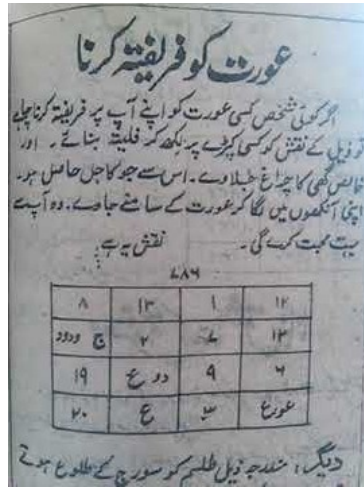 عورت کو فریفتہ کرنا
اگر کوئی شخص کسی عورت کو اپنے آپ پر فریفتہ کرنا چاہے
تو ذیل کے نقش کو کسی کپڑے پر لکھ کر فلیتہ بنائے۔ اور
خالص گھی کا چراغ جلاوے۔ اس سے جو کاجل حاصل ہو۔
اپنی آنکھوں میں لگا کر عورت کے سامنے جاوے۔ وہ آپ سے
بہت محبت کرے گی۔ نقش یہ ہے:
۷۸۶
۸ ۱۳ ۱ ۱۲
ج ودود ۲ ۷ ۱۳
۱۹ دو ع ۹ ۶
۲۰ ع ۳ عورع
دیگر: مندرجہ ذیل طلسم کو سورج کے طلوع ہوتے